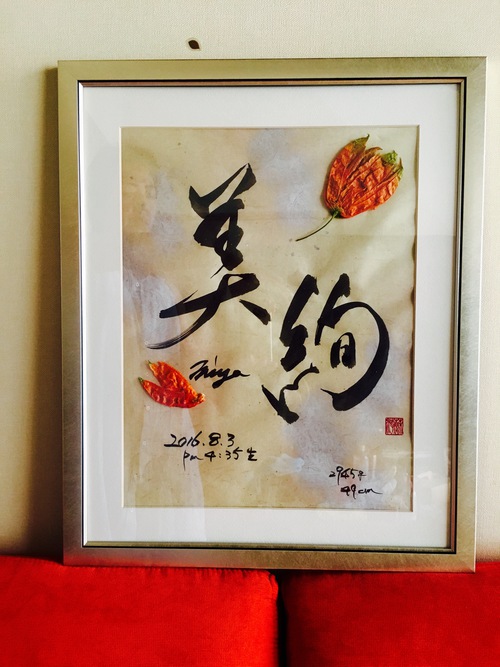 美絢
Miya
2016.8.3
pm 4:35 生
2965g
49cm